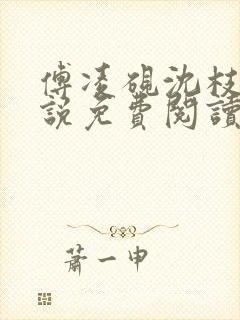 傅凌硯沈枝
說免費閱讀
蕭一申